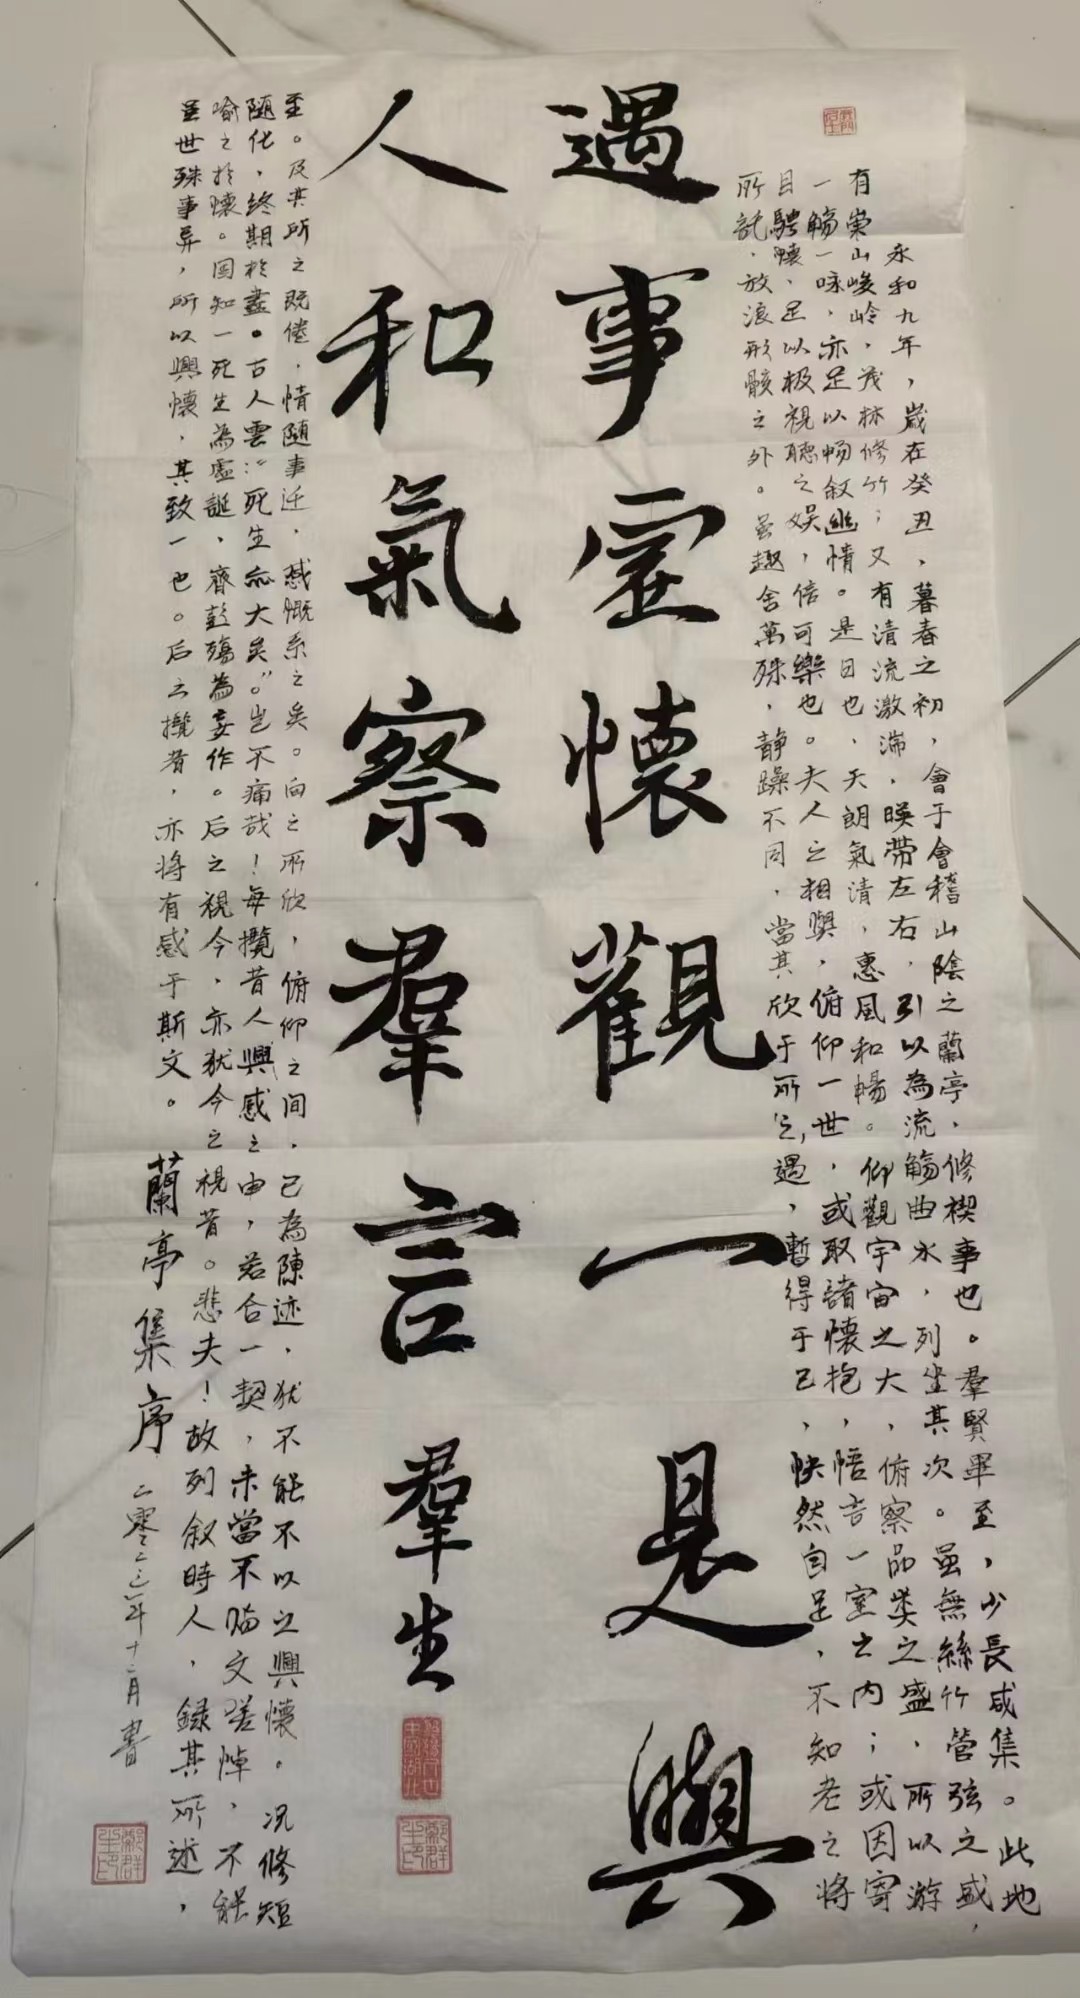 永和九年,歲在癸丑、暮春之初,會于會稽山陰之蘭亭,修禊事也。羣賢畢至,少長咸集。此地
有崇山峻岭,茂林修竹;又有清流激湍,暎帶左右,引以為流觴曲水,列坐其次。虽無絲竹管弦之盛,
一觴一咏,亦足以畅叙幽情。是日也,天朗氣清,惠風和暢。仰觀宇宙之大,俯察品类之盛,所以游
目騁懷,足以极視聽之娱,信可樂也。夫人之相與,俯仰一世,或取諸懷抱,悟言一室之内;或因寄
所託,放浪形骸之外。虽趣舍萬殊,静躁不同,當其欣于所之,遇,暫得于己,快然自足,不知老之将
遇事虛懷觀一是與
人和氣察羣言羣生
至。及其所之既倦,情随事迁,感慨系之矣。向之所欣,俯仰之间,已為陳迹,犹不能不以之興懷。况修短
随化,终期於盡。古人雲:“死生亦大矣。”岂不痛哉!每攬昔人興感之由,若合一契,未當不临文嗟悼,不能
喻之於懷。固知一死生為虚誕,齊彭殤為妄作。后之視今,亦犹今之視昔。悲夫!故列叙時人,録其所述,
虽世殊事异,所以興懷,其致一也。后之攬者,亦将有感于斯文。
蘭亭集序 二零二三年十二月書
鄭群生印
鄭群生印